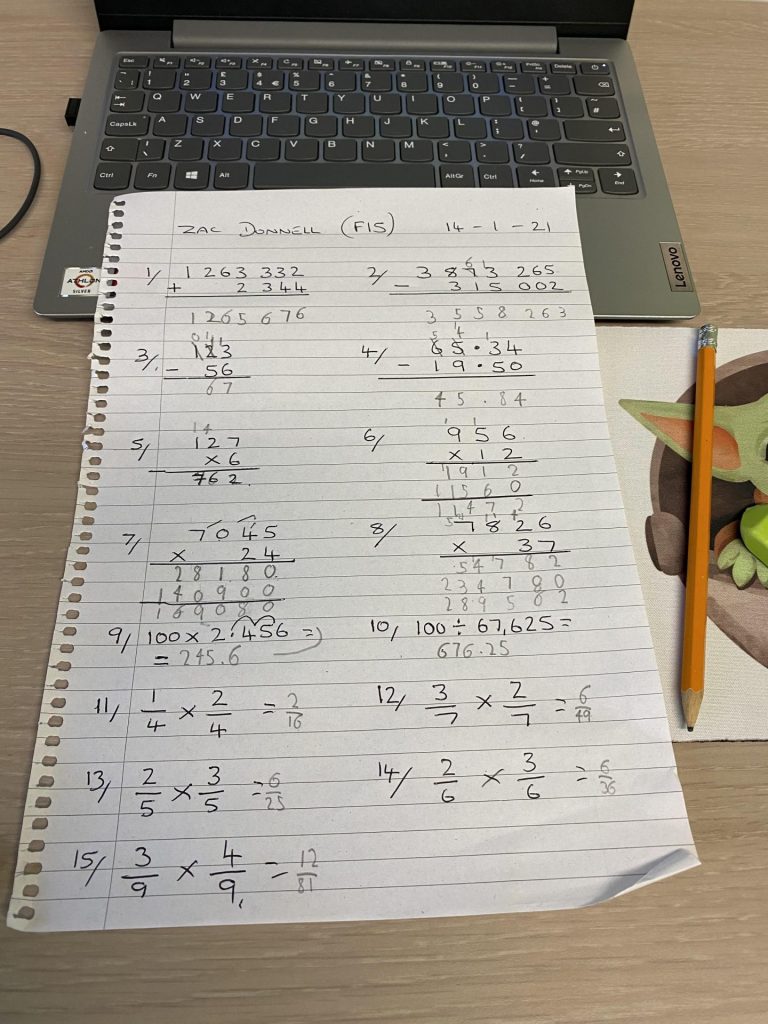 Esc F1 F2 F3 F4 F5 F6 F7 F8 F9 F10 F11 F12 Delete
Q W E R T Y U I O P
CapsLk A S D F G H J K L
Z X C V B N M
Ctrl Fn Alt AltGr Ctrl Home PgUp PgDn End
AMD
ATHLON
SILVER
Lenovo
ZAC DONNELL (F15) 14 - 1 - 21
6 1
1/ 1 263 332 2/ 3 873 265
+ 2 344 - 315 002
1265 676 3 558 263
0 1 1 5 4 1
3/. 123 4/ 65.34
- 56 - 19.50
67 45.84
1 4 1 1
5/ 127 6/ 956
x 6 x 12
762 1912
11560
11472
7/ 7045 8/ 7826
x 24 x 37
28180 54782
140900 234780
169080 289562
9/ 100 x 2.456 = 10/ 100 ÷ 67,625 =
= 245.6 676.25
11/ 1/4 x 2/4 = 2/16 12/ 3/7 x 2/7 = 6/49
13/ 2/5 x 3/5 = 6/25 14/ 2/6 x 3/6 = 6/36
15/ 3/9 x 4/9 = 12/81